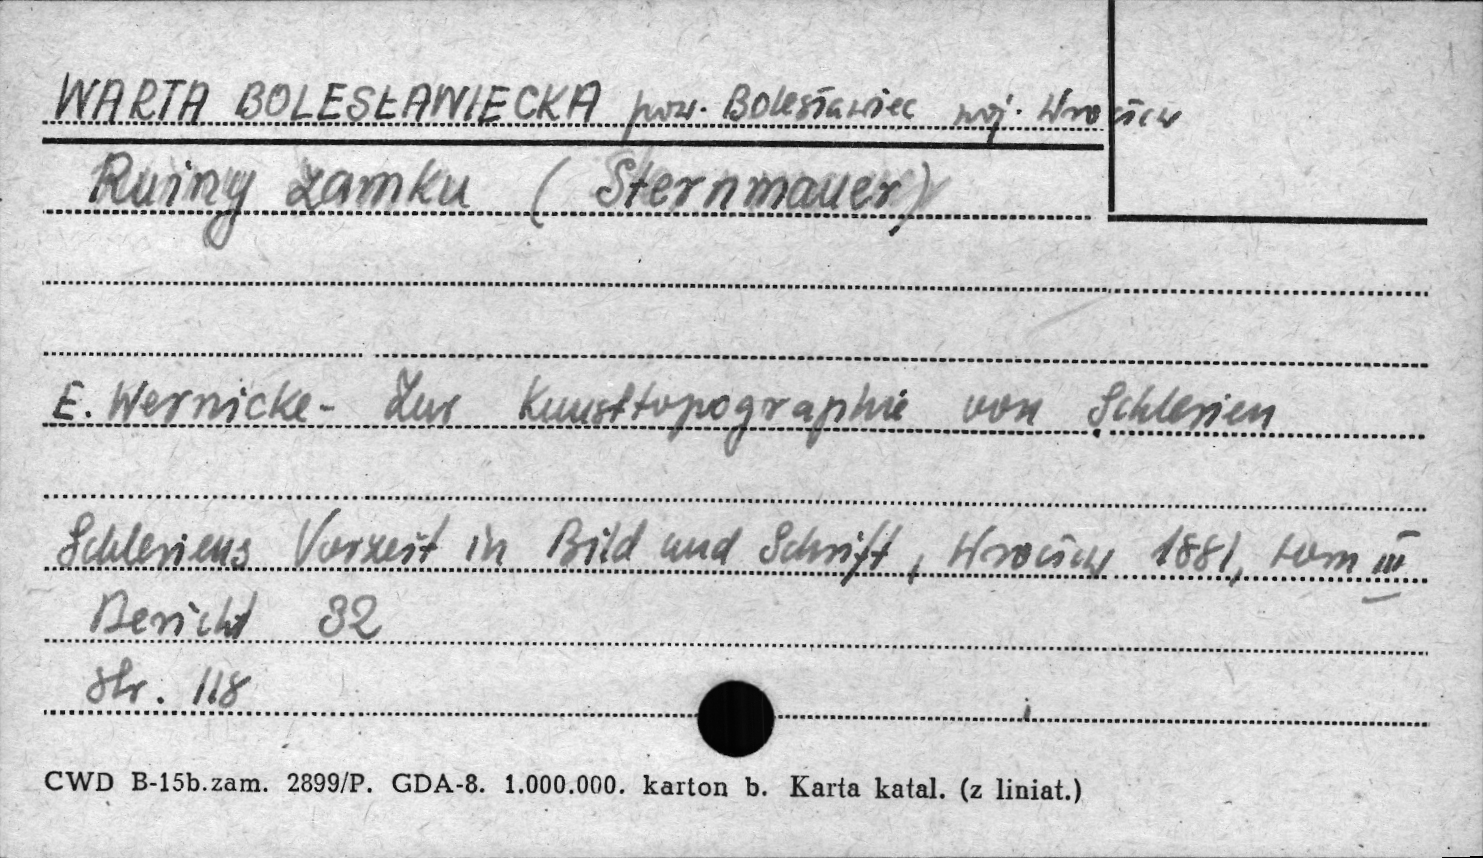 WARTA BOLESŁAWIECKA pow. Bolesławiec woj. Wrocław
Ruiny zamku (Sternmauer)
E. Wernicke - Zur Kunsttopographie von Schlesien
Schlesiens Vorzeit in Bild und Schrift, Wrocław 1881, tom III
Bericht 32
str. 118
CWD B-15b.zam. 2899/P. GDA-8. 1.000.000. karton b. Karta katal. (z liniat.)